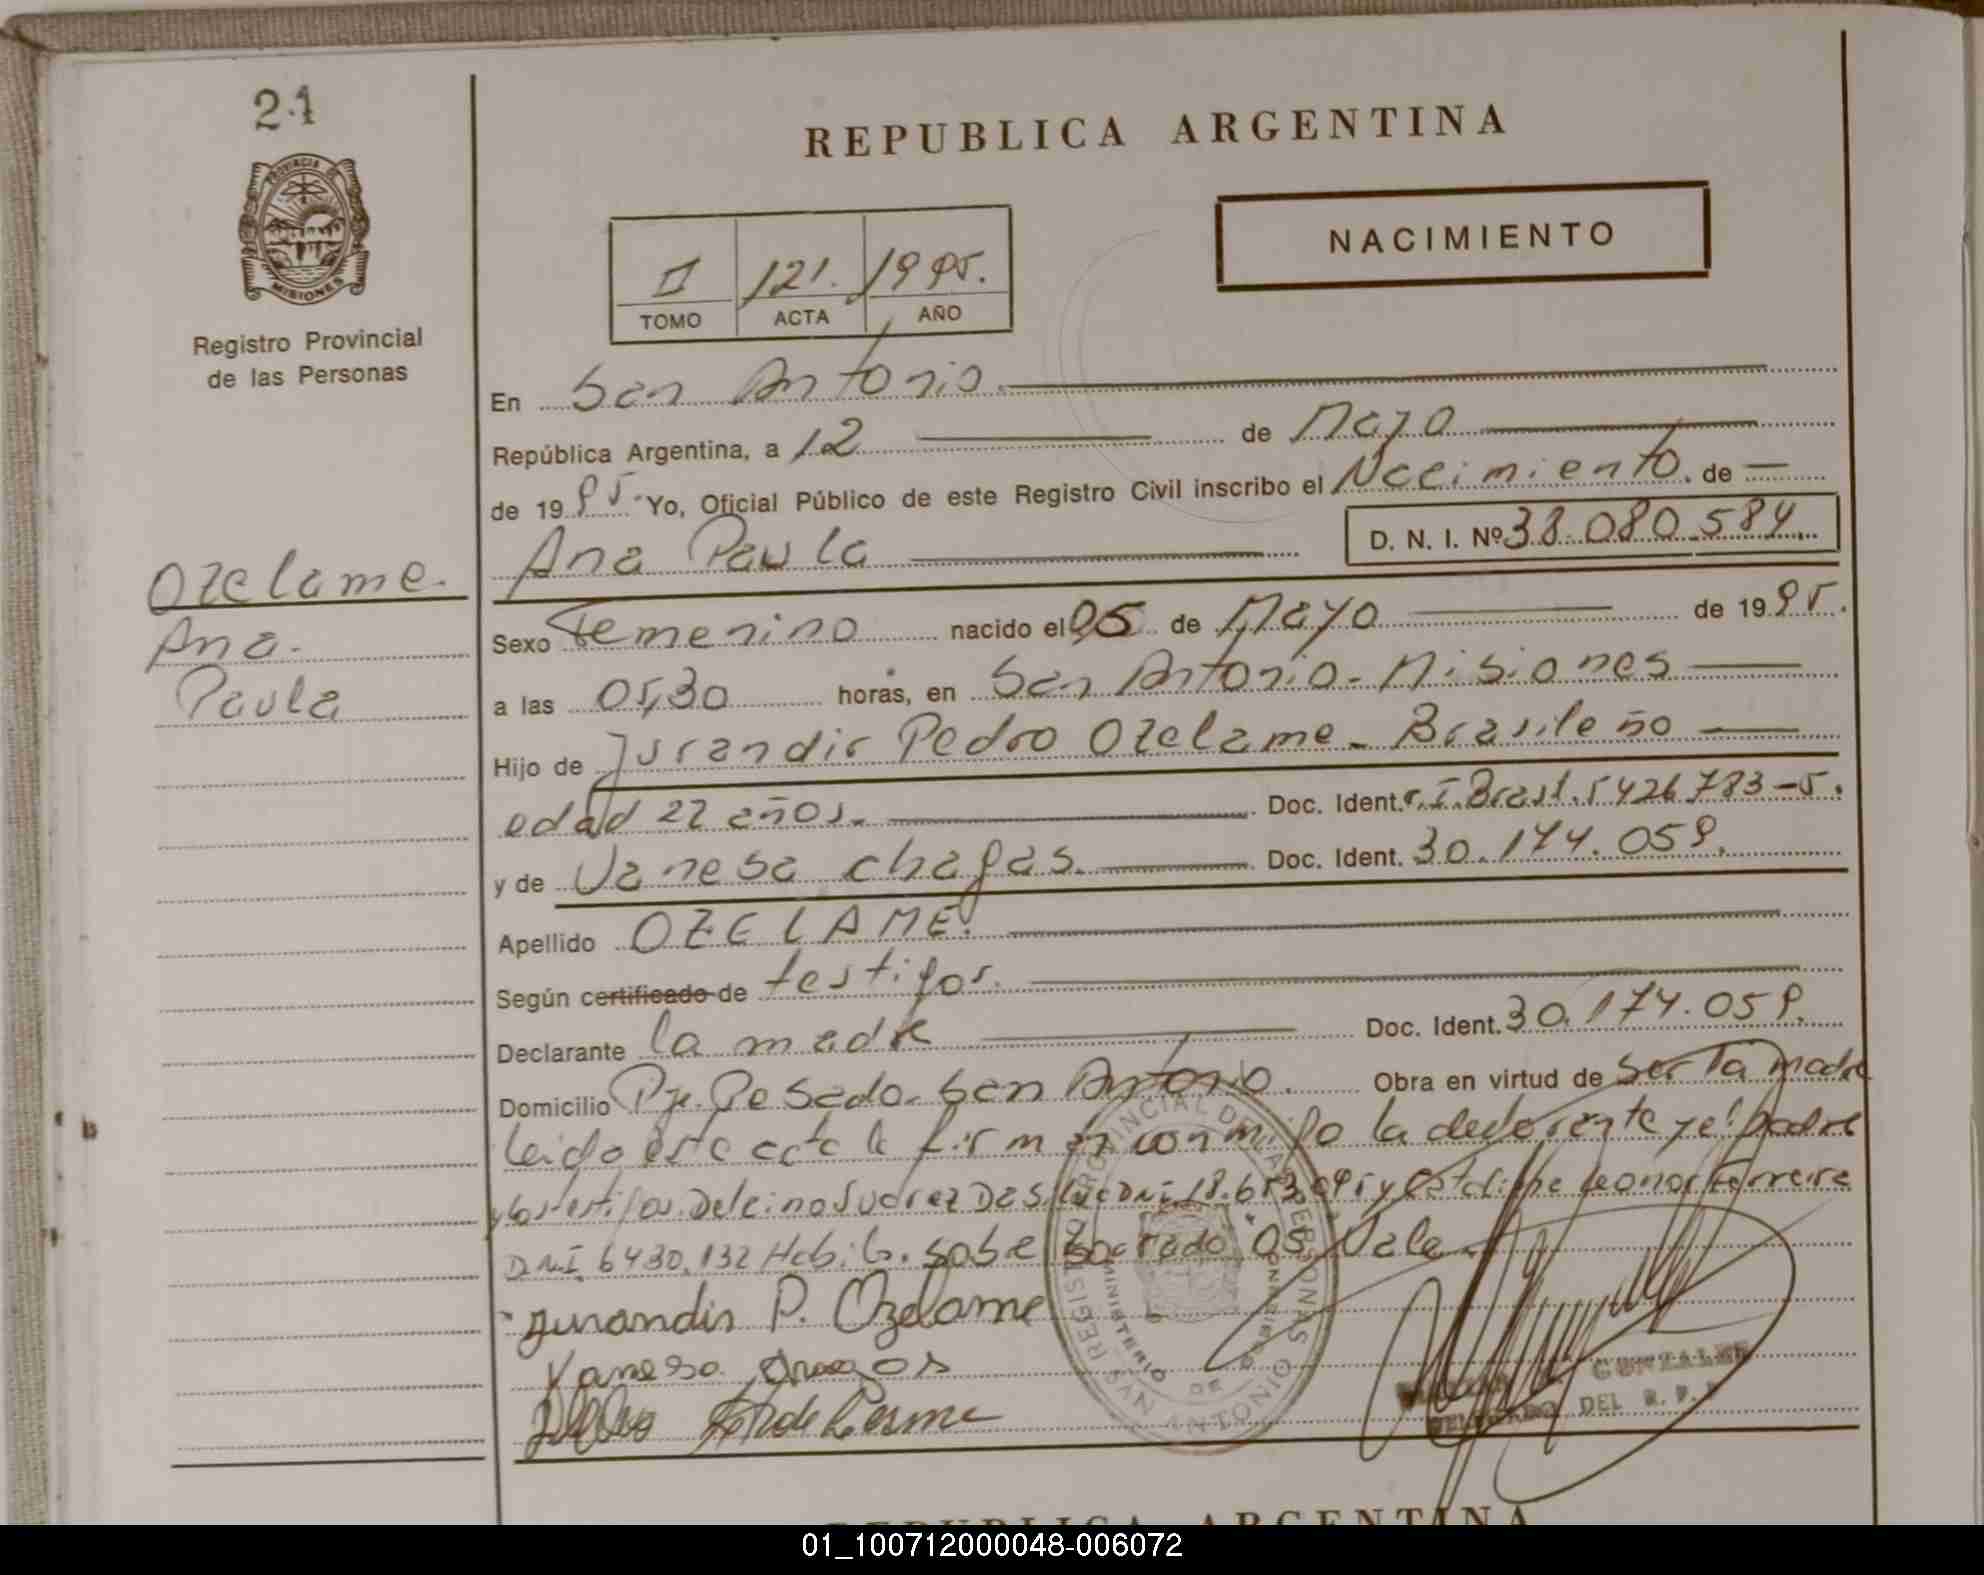 21
PROVINCIA DE
MISIONES
Registro Provincial
de las Personas
REPUBLICA ARGENTINA
NACIMIENTO
II 121. 1995.
TOMO ACTA AÑO
En San Antonio.
República Argentina, a 12 de Mayo
de 1995. Yo, Oficial Público de este Registro Civil inscribo el Nacimiento. de
Ana Paula D. N. I. Nº 38.080.584
Ozelame.
Ana.
Paula
Sexo Femenino nacido el 05 de Mayo de 1995.
a las 05,30 horas, en San Antonio - Misiones
Hijo de Jurandir Pedro Ozelame - Brasileño
edad 22 años. Doc. Ident. C.I. Brasl. 5426783-5.
y de Vanesa chagas. Doc. Ident. 30.174.059.
Apellido OZELAME.
Según certificado de testigos.
Declarante la madre Doc. Ident. 30.174.059.
Domicilio Pje. Pesado. San Antonio. Obra en virtud de ser la madre
leido este acta la firman conmigo la declarante y el padre
y los testigos. Delcino Suarez Da Silva DNI 18. y Leonor Ferreira
DNI. 6430.132 Habil. Sobre Borrado "05" Vale
Jurandir P. Ozelame
Vanesa chagas
REGISTRO PROVINCIAL DE LAS PERSONAS
MINISTERIO DE GOBIERNO
SAN ANTONIO
GONZALEZ
DEL R. P. P.
REPUBLICA ARGENTINA
01_100712000048-006072